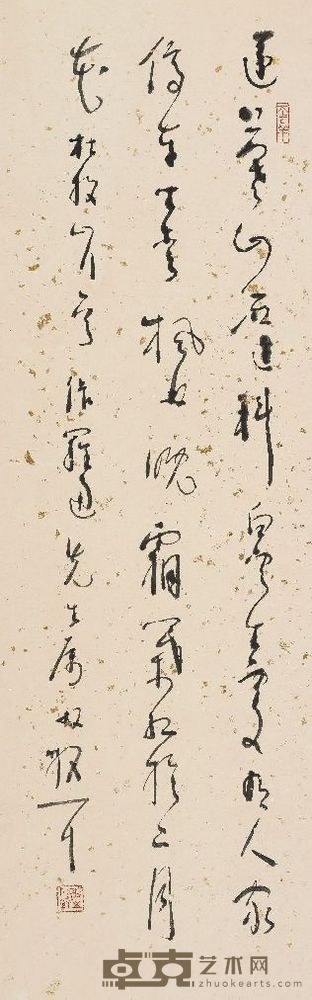 遠上寒山石逕斜白雲生處有人家
停車坐愛楓林晚霜葉紅於二月
花杜牧山行先生屬
卓克艺术网
zhuokearts.com